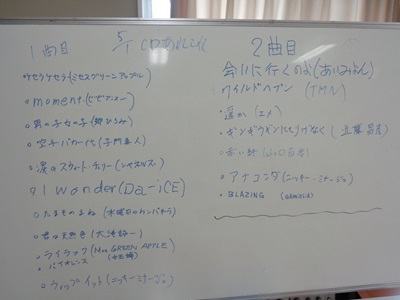 1曲目
5/1 CDあれこれ
ケセラケセラ(ミセスグリーンアップル)
○moment(ビビアンスー)
○男の子女の子(郷ひろみ)
○空手バカ一代(子門真人)
○涙のスウィートチェリー(シャネルズ)
○I wonder(Da-iCE)
○たまものまえ(水曜日のカンパネラ)
○君は天然色(大滝詠一)
○ライラック(Mrs.GREEN APPLE)
○バイオレンス(女王蜂)
○ウィップイット(ニッキーミナージュ)
2曲目
会いに行くのに(あいみょん)
ワイルドヘブン(TMN)
○遥か
○ギンギラギンにさりげなく(近藤真彦)
○赤い絆(山口百恵)
○アナコンダ(ニッキーミナージュ)
○BLAZING